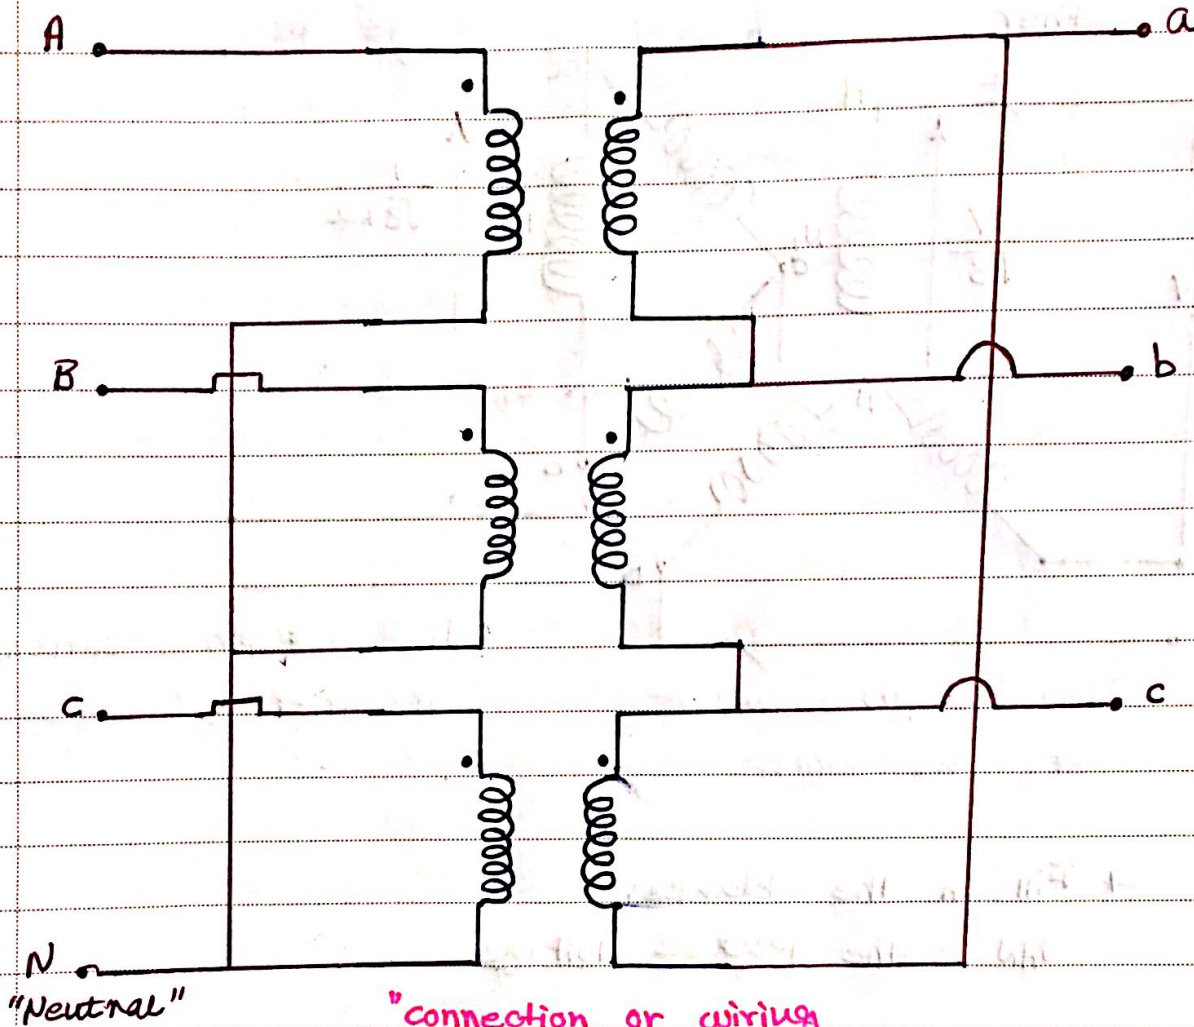 A
a
B
b
C
c
N
"Neutral"
"connection or wiring